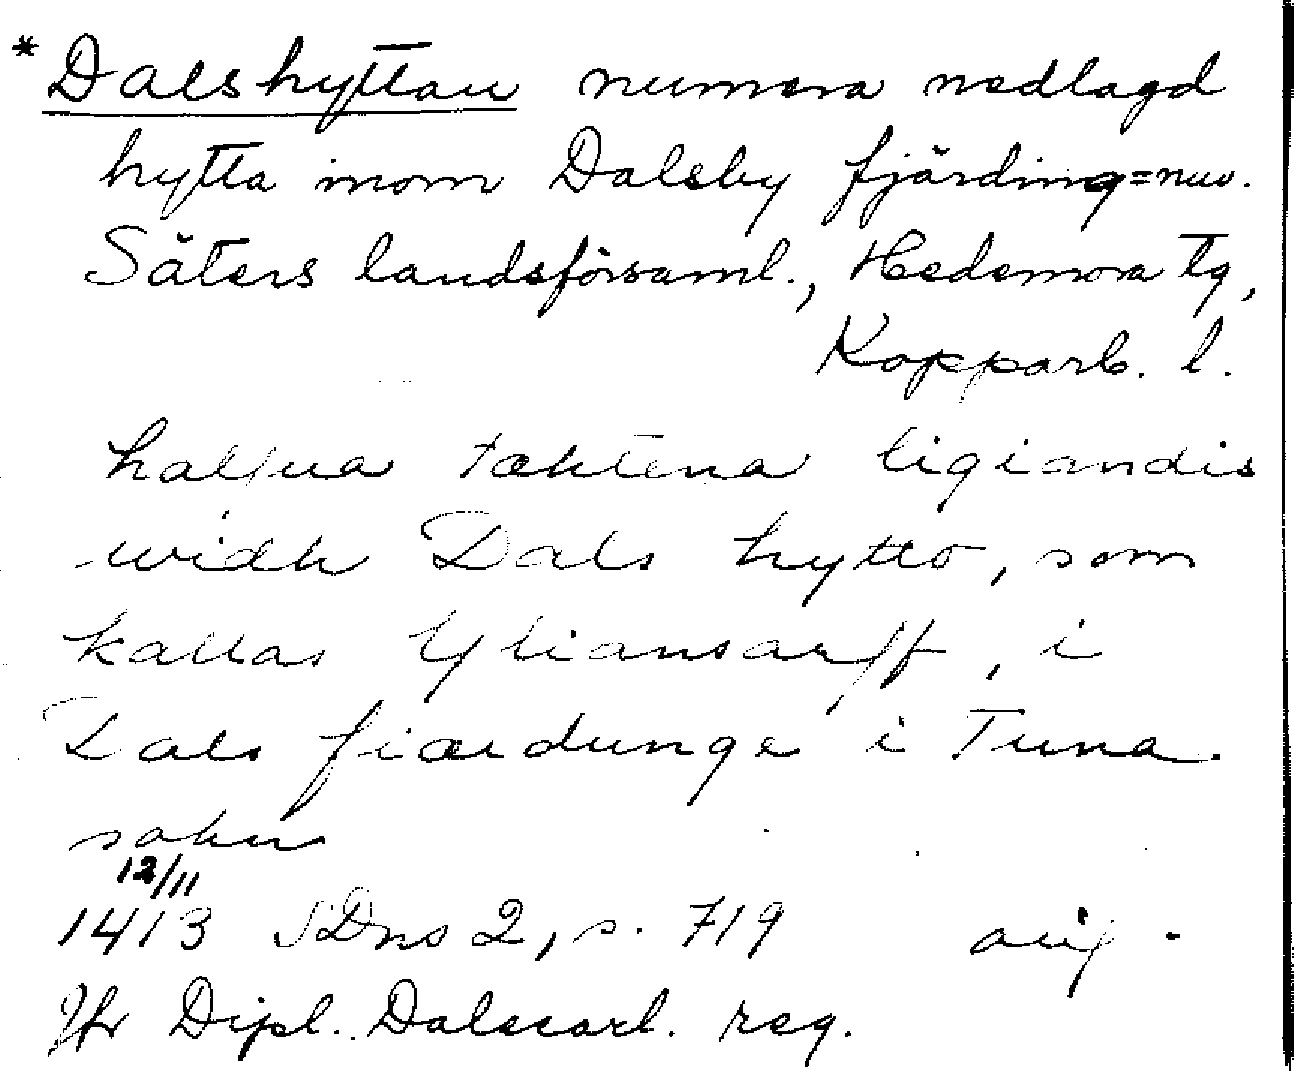 * Dalshyttan numera nedlagd
hytta inom Dalsby fjärding = nuv.
Säters landsförsaml., Hedemora tg,
Kopparb. l.
halfua tæktena ligiandis
widh Dals hytto, som
kallas Yliansarff, i
Dals fiærdunge i Tuna
sokn
12/11
1413 SDns 2, s. 719 orig.
Jfr Dipl. Dalecarl. reg.